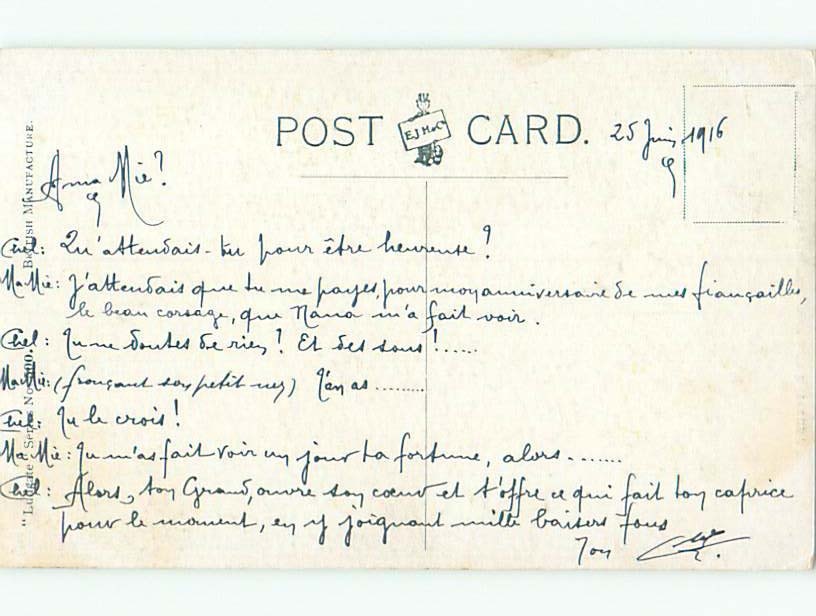 POST CARD.
E J H & Co
25 Juin 1916
A ma Mie?
Ciel: Qu'attendais-tu pour être heureuse?
Ma Mie: J'attendais que tu me payes, pour mon anniversaire de mes fiançailles,
le beau corsage, que Nana m'a fait voir.
Ciel: Tu ne doutes de rien? Et des sous!.....
Ma Mie: (fronçant son petit nez) T'en as .........
Ciel: Tu le crois!
Ma Mie: Tu m'as fait voir un jour ta fortune, alors .......
Ciel: Alors, ton Grand, ouvre son cœur et t'offre ce qui fait ton caprice
pour le moment, en y joignant mille baisers fous
Ton
BRITISH MANUFACTURE.
Series No.